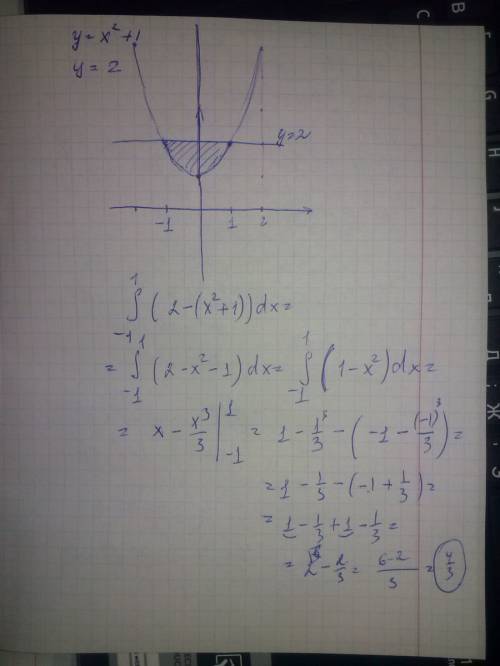 y = x² + 1
y = 2
y = 2
-1 1 2
∫₋₁¹ (2 - (x² + 1)) dx =
= ∫₋₁¹ (2 - x² - 1) dx = ∫₋₁¹ (1 - x²) dx =
= x - x³/3 |₋₁¹ = 1 - 1³/3 - (-1 - (-1)³/3) =
= 1 - 1/3 - (-1 + 1/3) =
= 1 - 1/3 + 1 - 1/3 =
= 2 - 2/3 = (6-2)/3 = 4/3